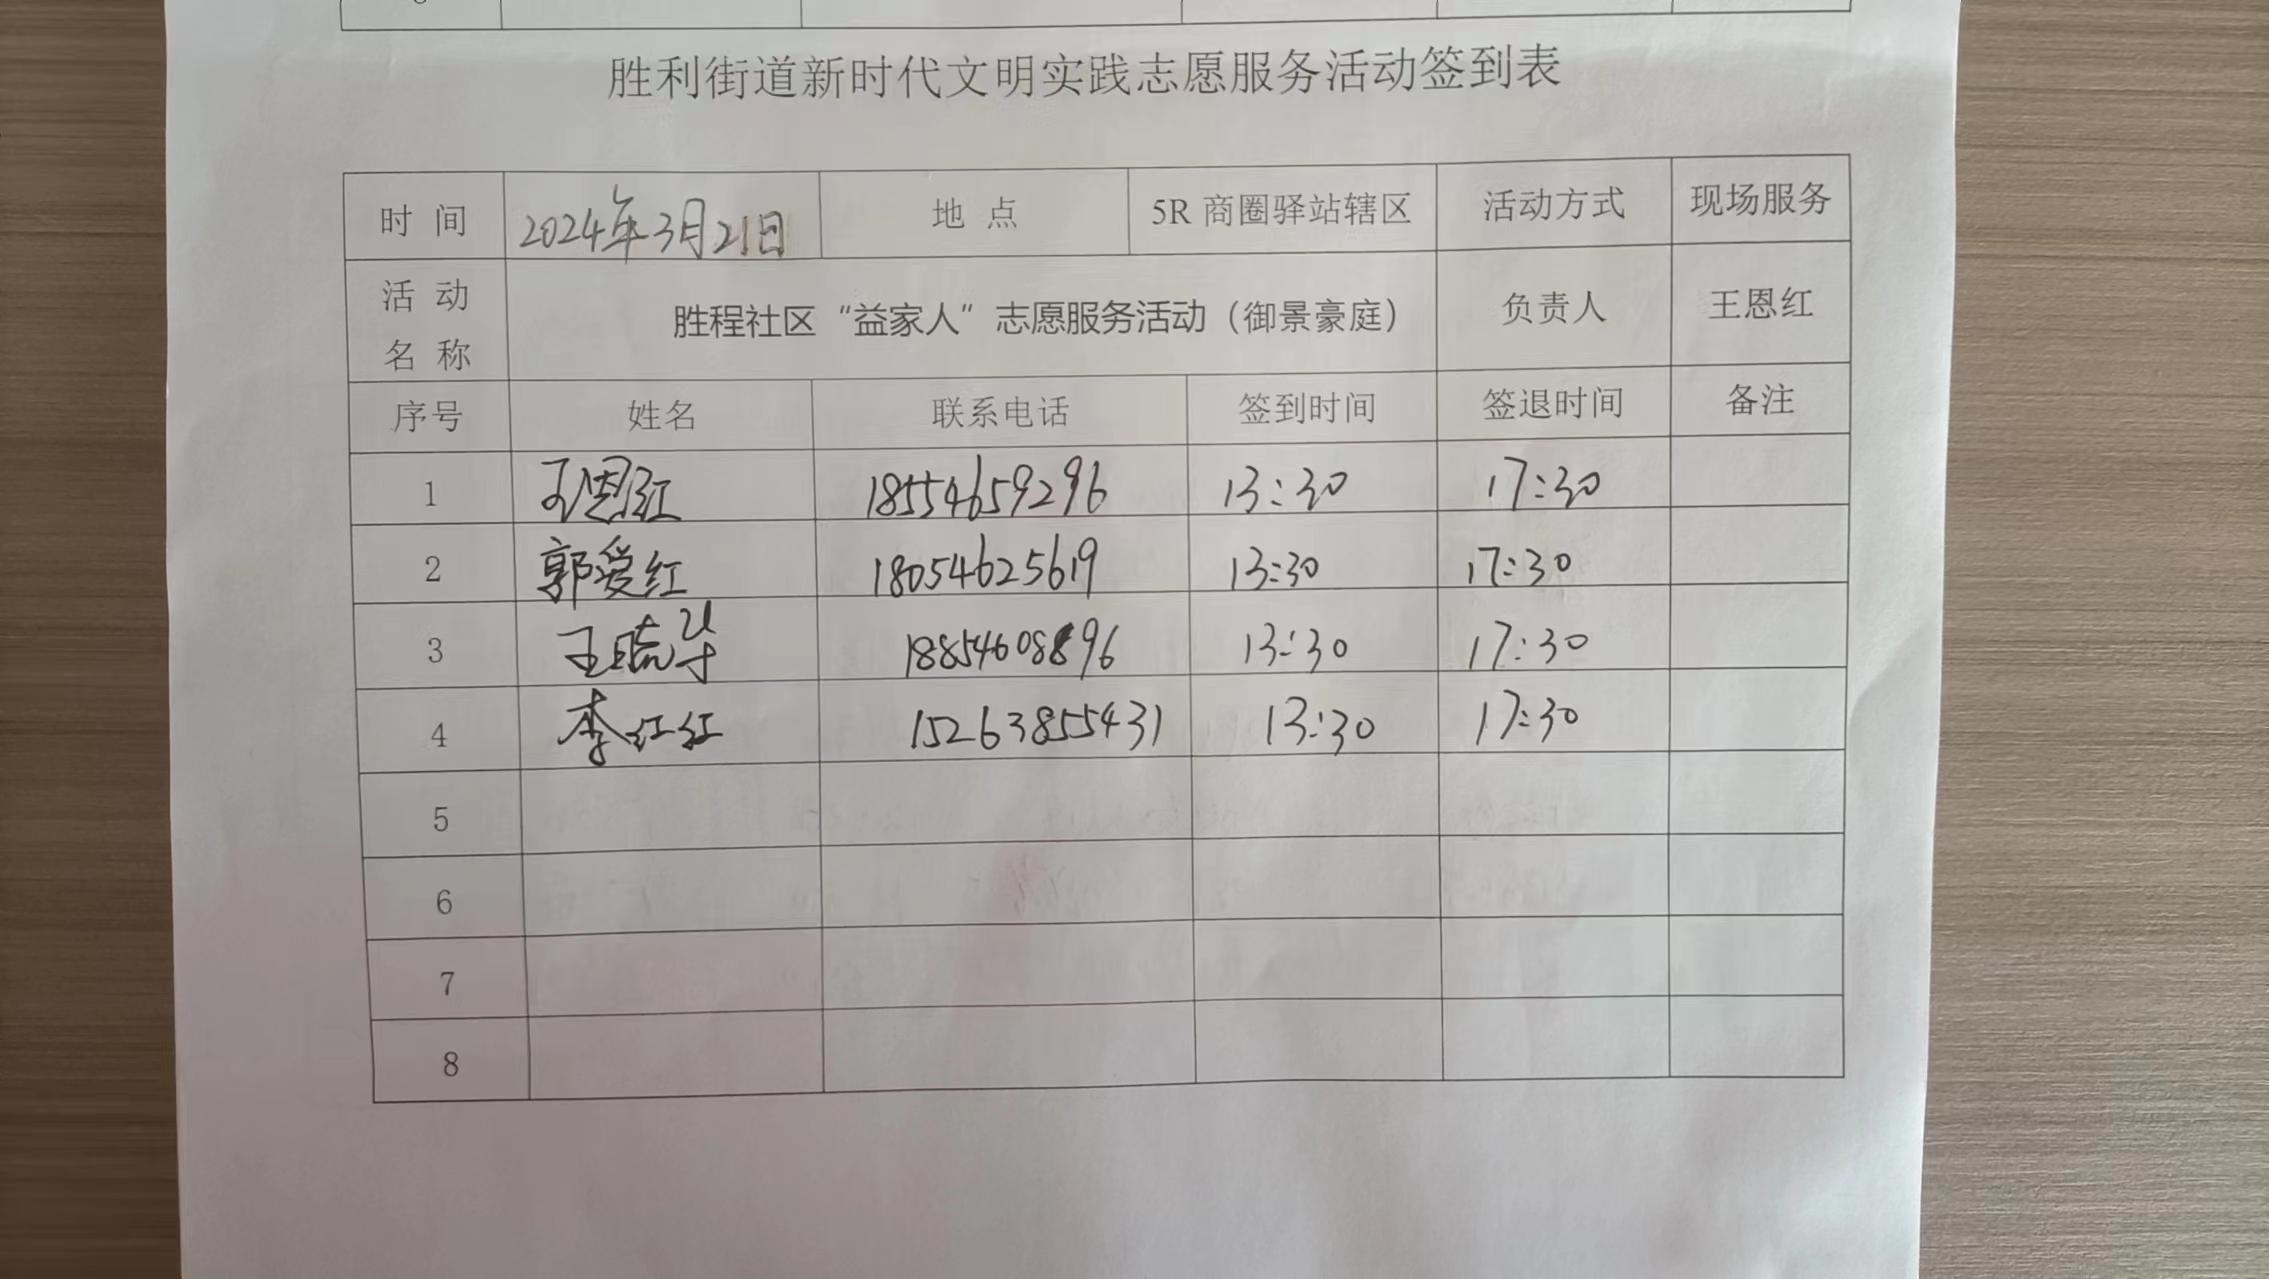 胜利街道新时代文明实践志愿服务活动签到表
时 间 2024年3月21日 地 点 5R 商圈驿站辖区 活动方式 现场服务
活 动 名 称 胜程社区“益家人”志愿服务活动（御景豪庭） 负责人 王恩红
序号 姓名 联系电话 签到时间 签退时间 备注
1 王恩红 18554659296 13:30 17:30
2 郭爱红 18054625619 13:30 17:30
3 王晓华 18854608896 13:30 17:30
4 李红红 15263855431 13:30 17:30
5
6
7
8